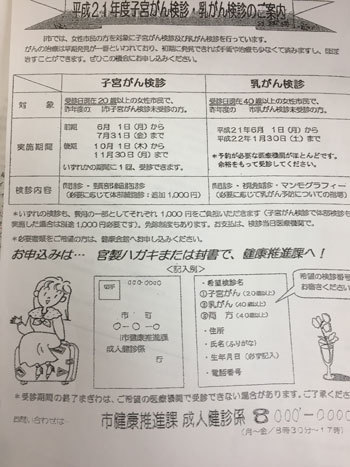 平成21年度子宮がん検診・乳がん検診のご案内
市では、女性市民の方を対象に子宮がん検診及び乳がん検診を行っています。
がんの治療は早期発見が一番といわれており、初期に発見できれば手術や治療も少なくて済みますし、
治すことができます。ぜひこの機会にお申込みください。
子宮がん検診
乳がん検診
対象
受診日現在20歳以上の女性市民で、
昨年度の 市子宮がん検診未受診の方。
受診日現在40歳以上の女性市民で、
昨年度の 市乳がん検診未受診の方。
実施期間
前期 6月1日(月)から
7月31日(金)まで
後期 10月1日(木)から
11月30日(月)まで
いずれかの期間に1回、受診できます。
平成21年6月1日(月)から
平成22年1月30日(土)まで
*予約が必要な医療機関がほとんどです。
余裕をもって受診してください。
検診内容
問診・視診・頸部細胞診
(必要に応じて体部細胞診:追加1,000円)
問診・視触診・マンモグラフィー
(必要に応じて乳がん予防についての指導)
*いずれの検診も、費用の一部としてそれぞれ1,000円をご負担いただきます(子宮がん検診で体部検診も
実施した場合は別途1,000円必要です)。免除制度もあります。お支払は、検診当日医療機関で。
*必要書類をご希望の方は、健康会館へお申し込みください。
お申込みは… 官製ハガキまたは封書で、健康推進課へ!
<記入例>
切手
市 町
○-○-○
市健康推進課
成人健診係 行
・希望検診名
①子宮がん(20歳以上)
②乳がん(40歳以上)
③両 方(40歳以上)
・住所
・氏名(ふりがな)
・生年月日(必ず記入)
・電話番号
希望の検診番号
お書きください
*受診期間の終了まぎわは、ご希望の医療機関で受診できない場合があります。ご了承くださ
お問い合わせは
市健康推進課 成人健診係 ☎000-0000
(月~金/8時30分~17時)